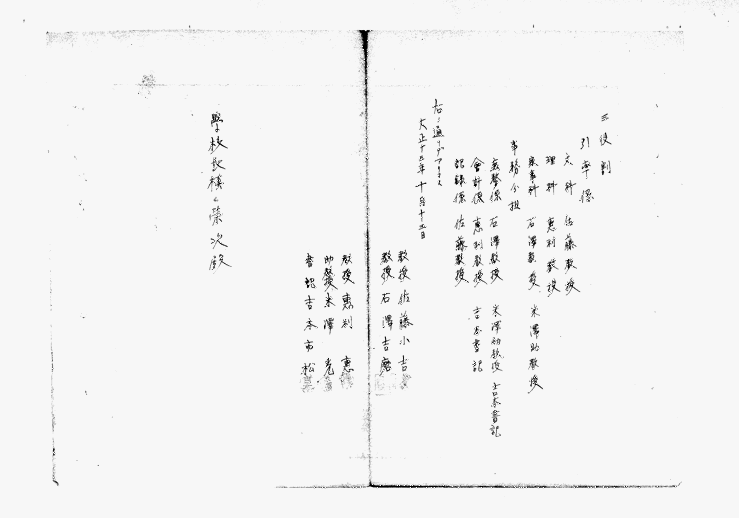 三 役割
引率係
文科 佐藤教授
理科 惠利教授
家事科 石澤教授 米澤助教授
事務分担
石澤教授 米澤助教授 吉本書記
會計係 惠利教授 吉本書記
記録係 佐藤教授
右ノ通リ
大正十三年十月十五日
教授 佐藤小吉
教授 石澤吉磨
教授 惠利 惠
助教授 米澤
書記 吉本市松
學校長 槇山榮次殿